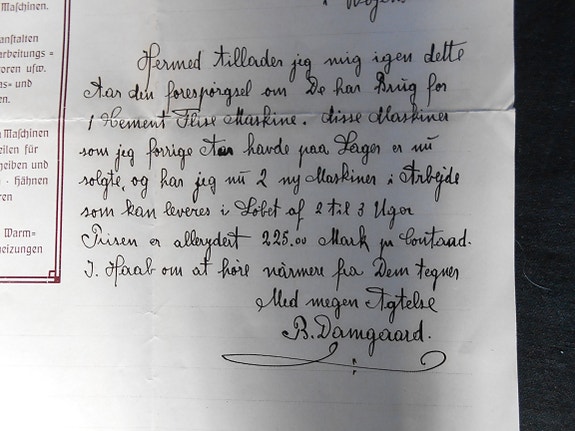 Maschinen.
anstalten
arbeitungs=
oren usw.
as= und
en.
n Maschinen
eilen für
heiben und
· Hähnen
ren
Warm=
heizungen
Hermed tillader jeg mig igen dette
Aar den forespörgsel om De har Brug for
1 Cement Flise Maskine. disse Maskiner
som jeg forrige Aar havde paa Lager er nu
solgte, og har jeg nu 2 ny Maskiner i Arbejde
som kan leveres i Löbet af 2 til 3 Uger
Prisen er allerydert 225.00 Mark pr Contand.
I. Haab om at höre närmere fra Dem tegner
Med megen Agtelse
B. Damgaard.